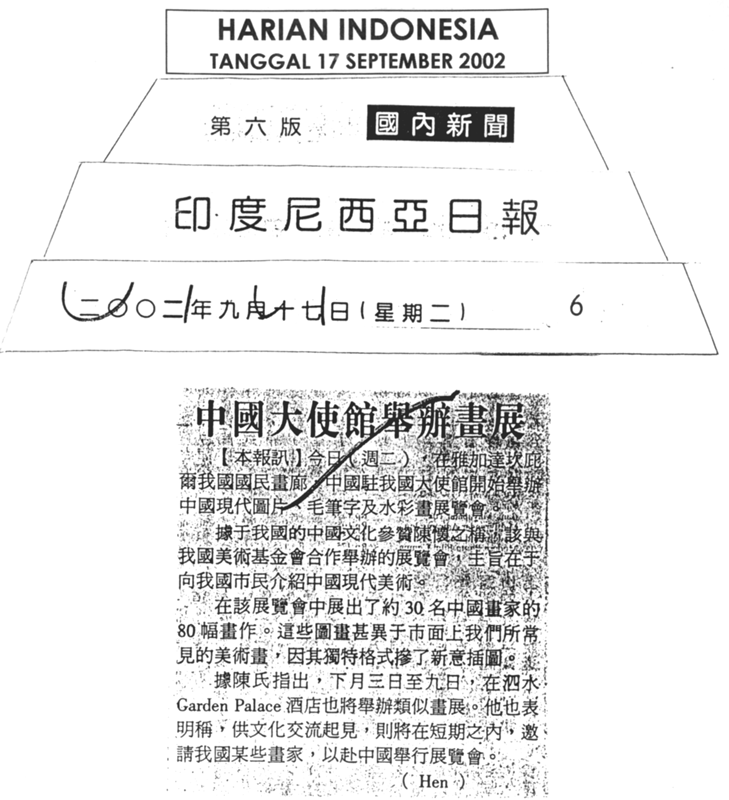 HARIAN INDONESIA
TANGGAL 17 SEPTEMBER 2002
第六版 國內新聞
印度尼西亞日報
二〇〇二年九月十七日(星期二) 6
中國大使館舉辦畫展
【本報訊】今日(週二),在雅加達坎庇
爾我國國民畫廊,中國駐我國大使館開始舉辦
中國現代圖片、毛筆字及水彩畫展覽會。
據于我國的中國文化參贊陳懷之稱,該與
我國美術基金會合作舉辦的展覽會,主旨在于
向我國市民介紹中國現代美術。
在該展覽會中展出了約30名中國畫家的
80幅畫作。這些圖畫甚異于市面上我們所常
見的美術畫,因其獨特格式摻了新意插圖。
據陳氏指出,下月三日至九日,在泗水
Garden Palace 酒店也將舉辦類似畫展。他也表
明稱,供文化交流起見,則將在短期之內,邀
請我國某些畫家,以赴中國舉行展覽會。
(Hen)